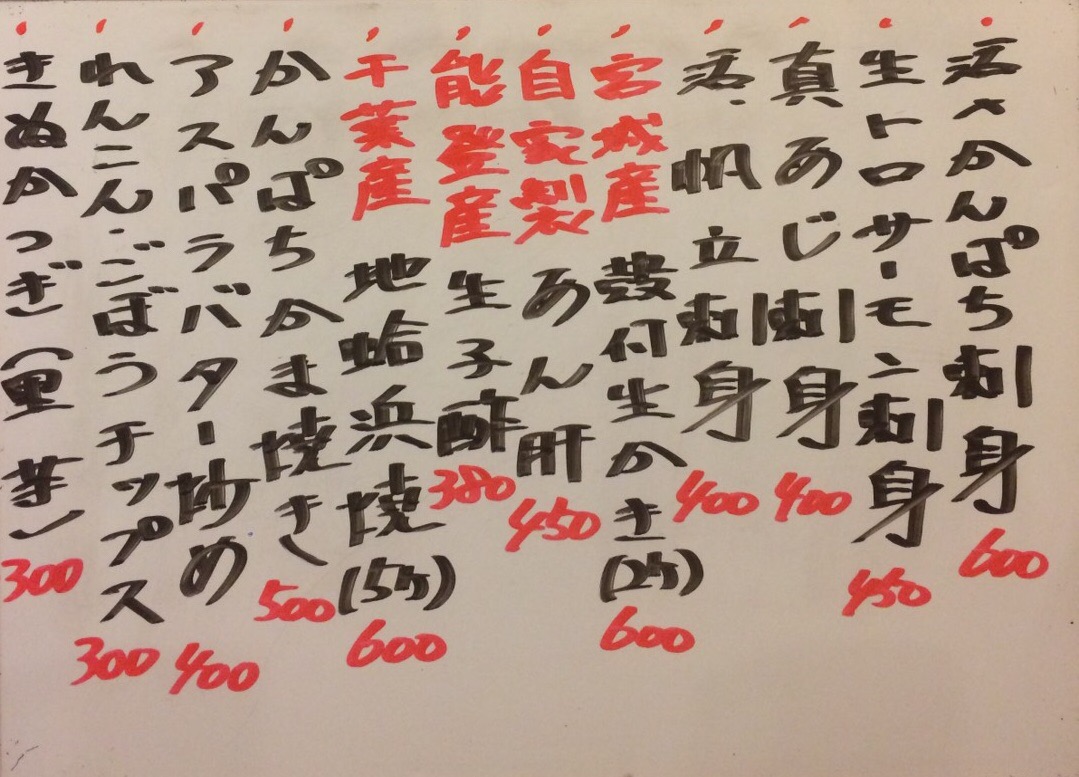 活〆かんぱち刺身 600
生トロサーモン刺身 450
真あじ刺身 400
活帆立刺身 400
宮城産 殻付生かき(2ケ) 600
自家製 あん肝 450
能登産 生子酢 380
千葉産 地蛤浜焼(5ケ) 600
かんぱちかま焼き 500
アスパラバター炒め 400
れんこん・ごぼうチップス 300
きぬかつぎ(里芋) 300